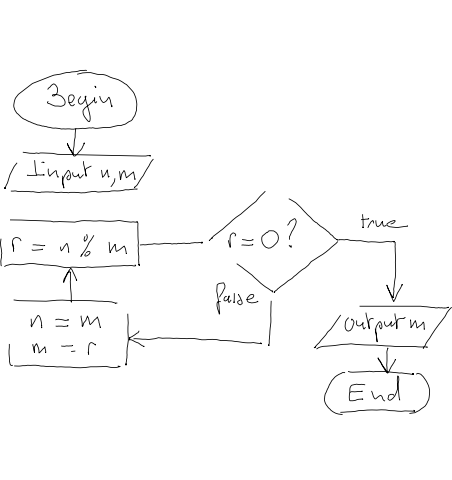 Begin
Input n, m
r = n % m
r = 0?
true
false
n = m
m = r
output m
End